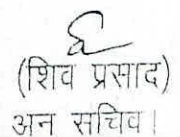 (शिव प्रसाद)
अनु सचिव।